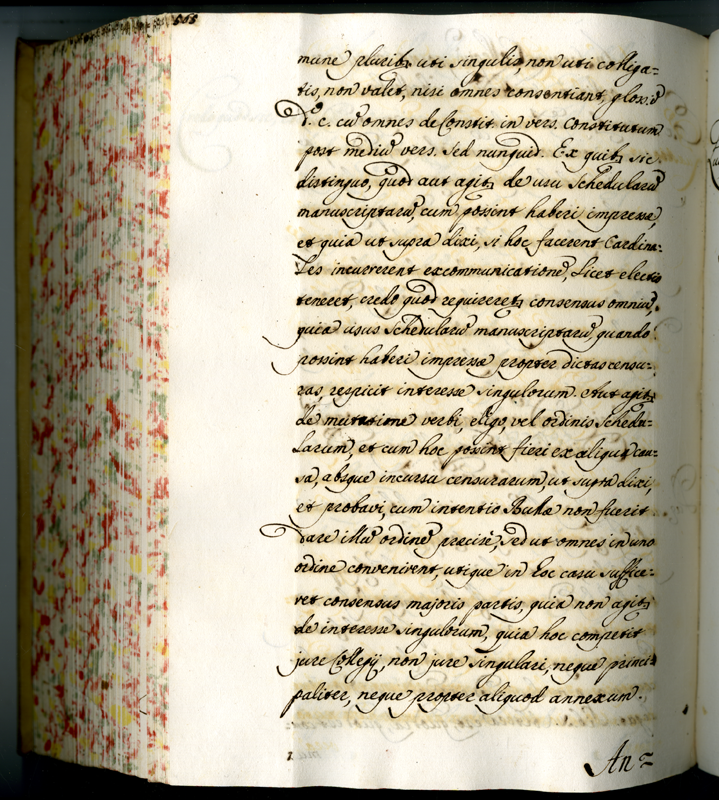 568
mune pluribꝫ uti singulis, non uti colliga=
tis, non valet, nisi omnes consentiant, gloss. ī
d. c. cū omnes de Constit. in vers. Constitutum
post mediū vers. Sed nunquid. Ex quibꝫ sic
distinguo, quod aut agitꝫ de usu Schedularū
manuscriptarū, cum possint haberi impressæ,
et quia ut supra dixi, si hoc facerent Cardina=
les incurrerent excommunicationē, licet electio
teneret, credo quod requireretꝫ consensus omniū,
quia usus Schedularū manuscriptarū, quando
possint haberi impressæ propter dictas censu=
ras, respicit interesse singulorum. Aut agitꝫ
de mutatione verbi, eligo, vel ordinis Schedu=
larum, et cum hoc possint fieri ex aliqua cau=
sa, absque incursu censurarum, ut supra dixi,
et probavi, cum intentio Bullæ non fuerit
dare illū ordinē precisē, sed ut omnes in uno
ordine convenirent, utique in hoc casu suffice=
ret consensus majoris partis, quia non agitꝫ
de interesse singulorum, quia hoc competit
jure Collegij, non jure singulari, neque princi=
paliter, neque propter aliquod annexum.
An=